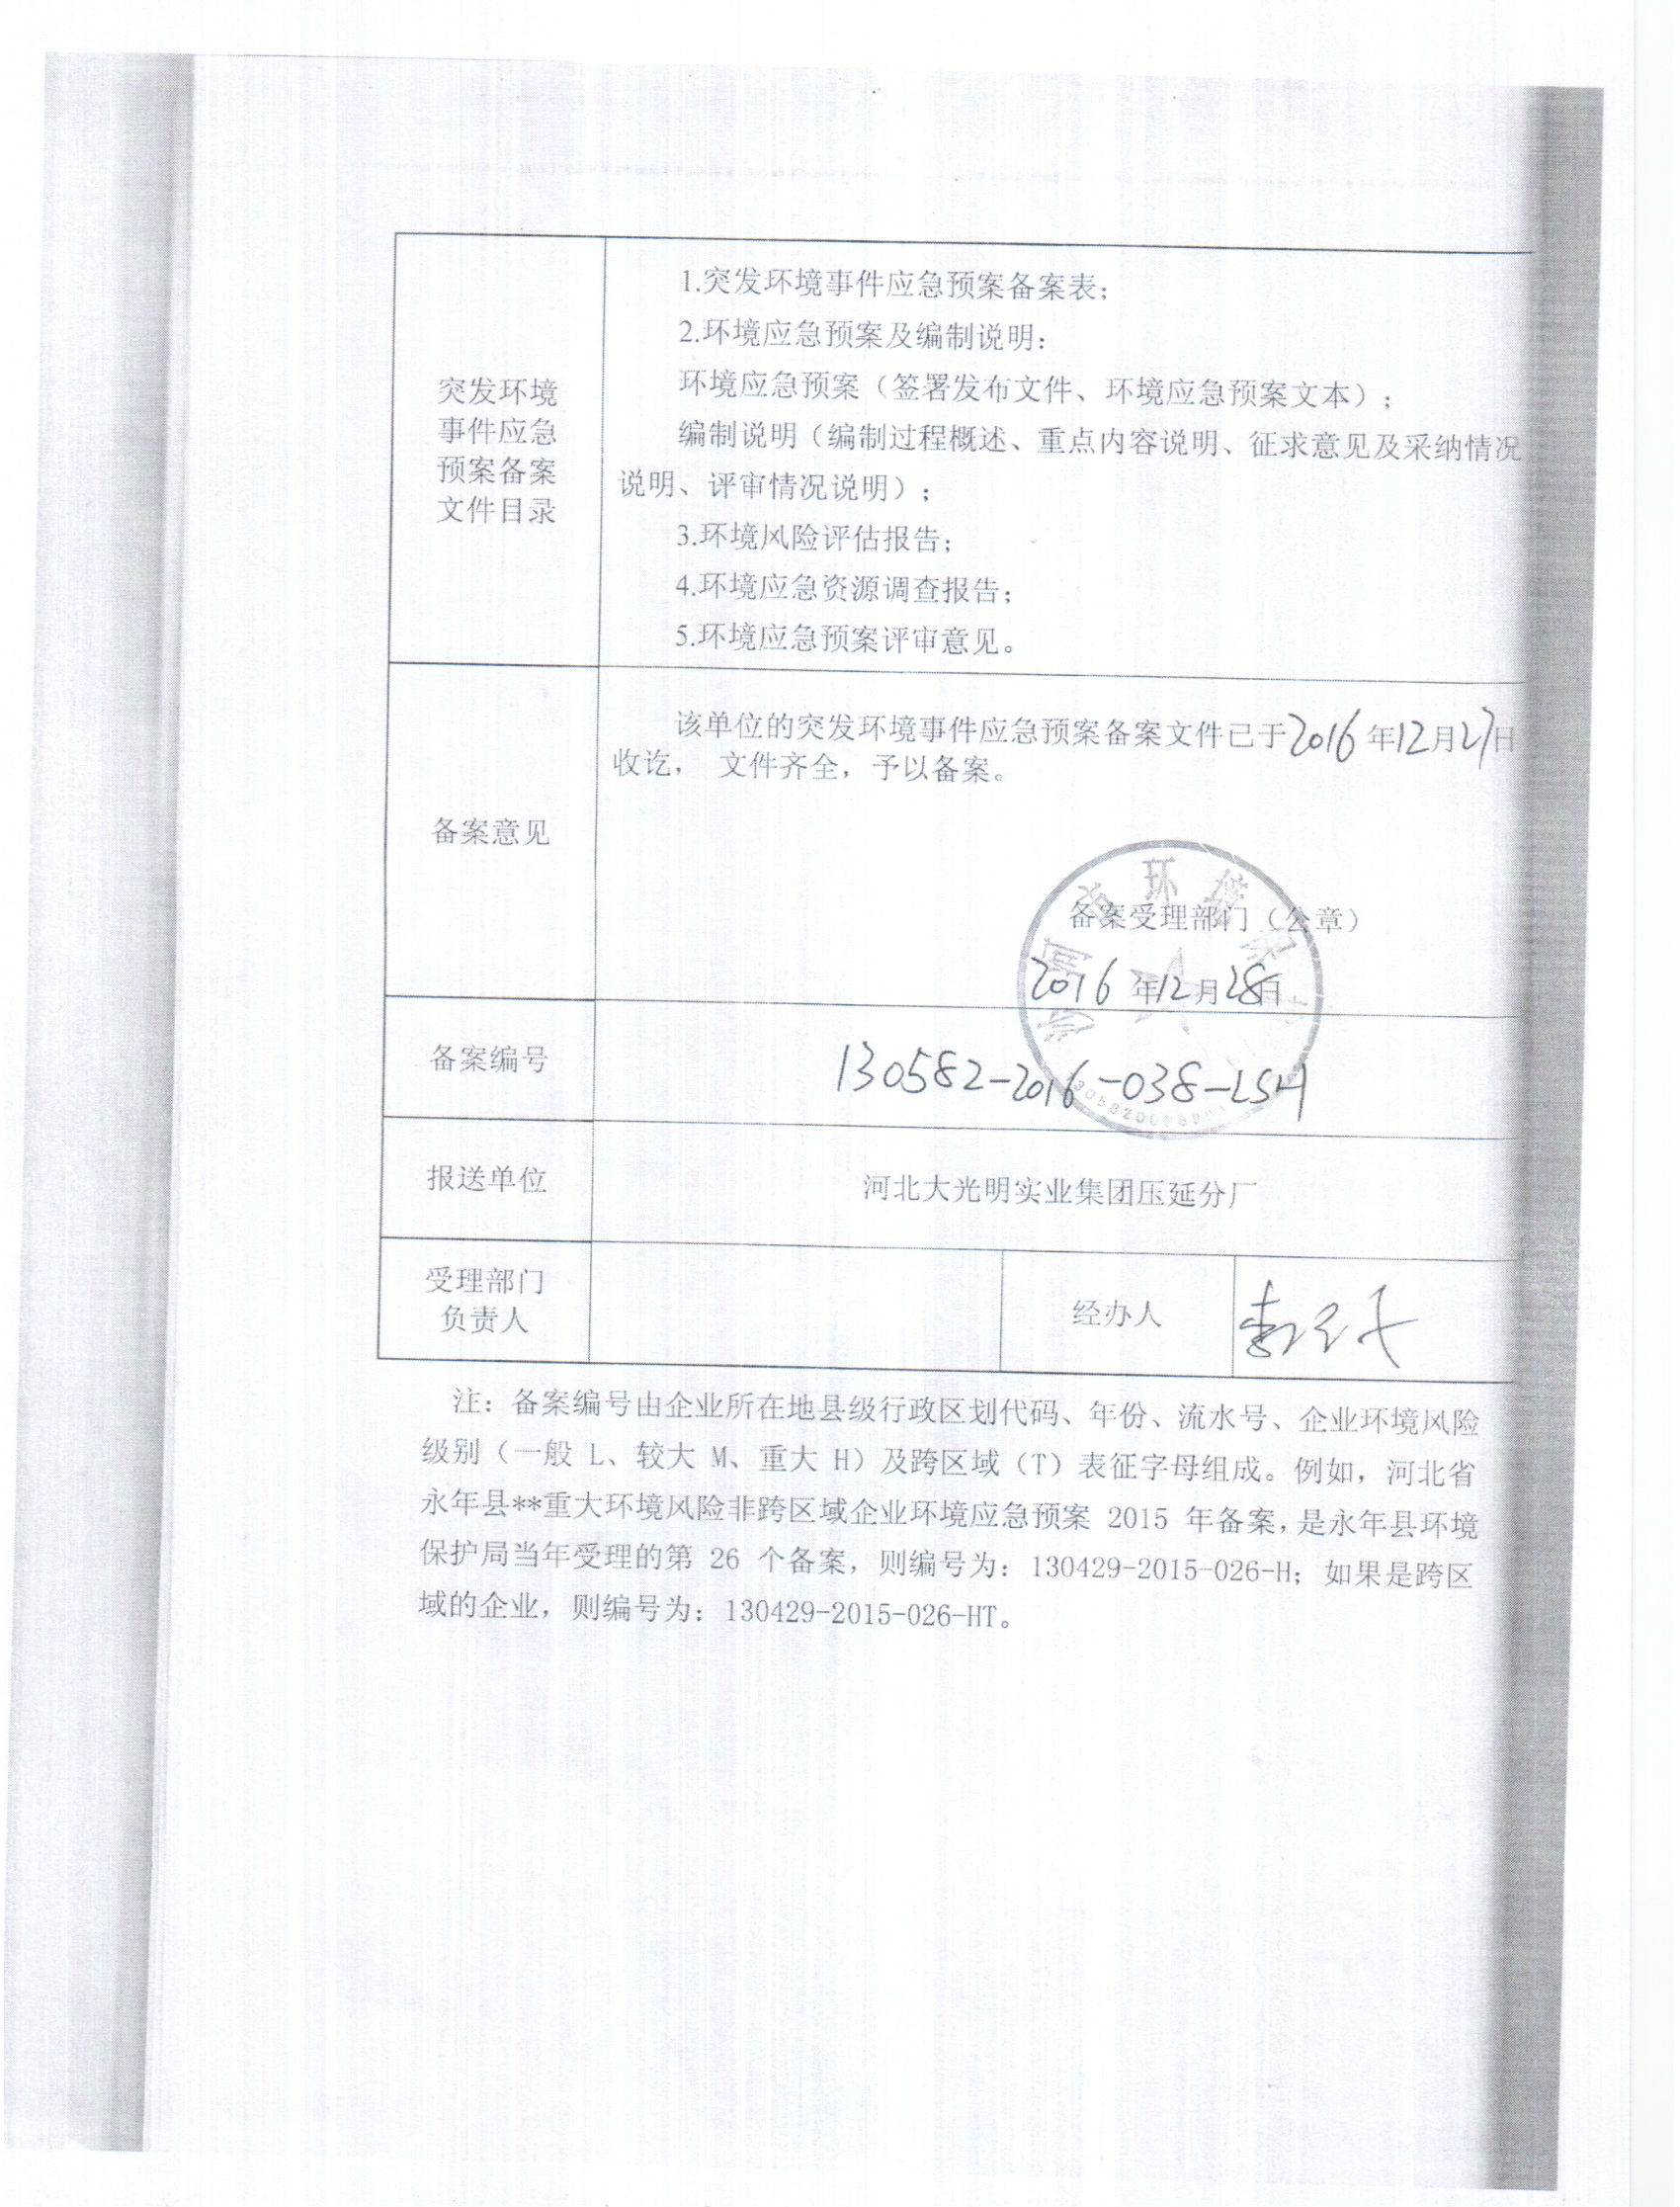 突发环境
事件应急
预案备案
文件目录
1.突发环境事件应急预案备案表;
2.环境应急预案及编制说明:
环境应急预案（签署发布文件、环境应急预案文本）;
编制说明（编制过程概述、重点内容说明、征求意见及采纳情况
说明、评审情况说明）;
3.环境风险评估报告;
4.环境应急资源调查报告;
5.环境应急预案评审意见。
备案意见
该单位的突发环境事件应急预案备案文件已于2016年12月27日
收讫， 文件齐全，予以备案。
市环境
备案受理部门（公章）
2016年12月28日
备案编号
130582-2016-038-LSH
报送单位
河北大光明实业集团压延分厂
受理部门
负责人
经办人
注：备案编号由企业所在地县级行政区划代码、年份、流水号、企业环境风险
级别（一般 L、较大 M、重大 H）及跨区域（T）表征字母组成。例如，河北省
永年县**重大环境风险非跨区域企业环境应急预案 2015 年备案，是永年县环境
保护局当年受理的第 26 个备案，则编号为：130429-2015-026-H；如果是跨区
域的企业，则编号为：130429-2015-026-HT。